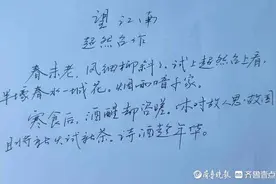 望江南
超然台作
春未老，风细柳斜斜，试上超然台上看，
半壕春水一城花。烟雨暗千家。
寒食后，酒醒却咨嗟，休对故人思故国
且将新火试新茶。诗酒趁年华。
齐鲁晚报 齐鲁壹点